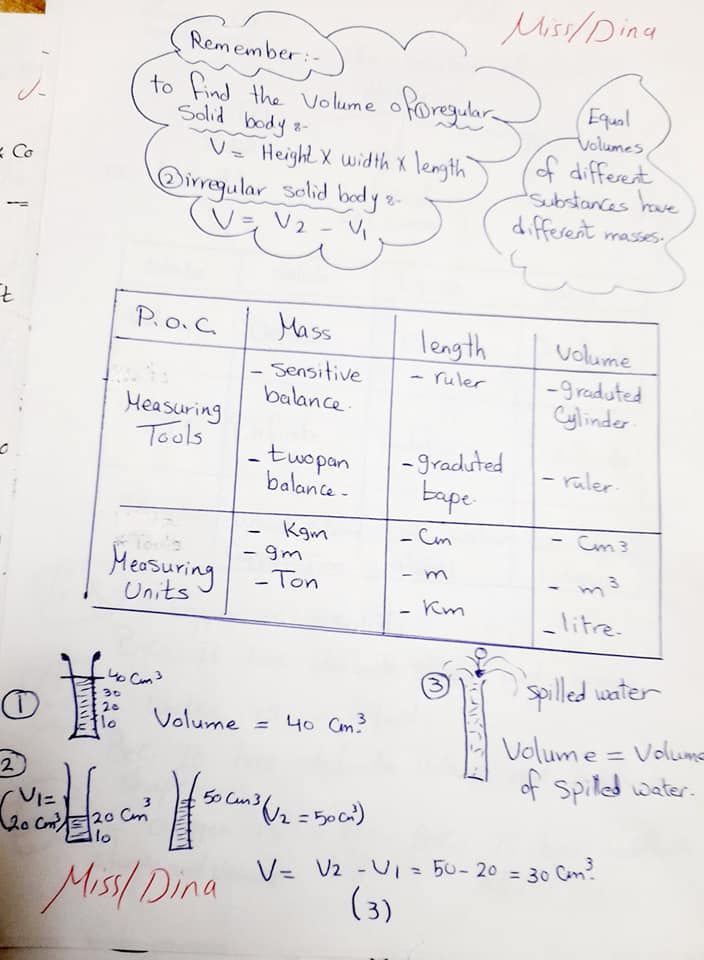 Miss/Dina
Remember:-
to find the volume of ① regular
Solid body :-
V = Height X width X length
② irregular solid body :-
V = V2 - V1
Equal
volumes
of different
substances have
different masses.
& Co
P.O.C.
Mass
length
Volume
Measuring
Tools
- Sensitive
balance.
- twopan
balance -
- ruler
- graduted
tape.
- graduted
Cylinder.
- ruler.
Measuring
Units
- Kgm
- gm
- Ton
- Cm
- m
- Km
- Cm3
- m3
- litre.
①
40 Cm3
30
20
10
Volume = 40 Cm3.
③
Spilled water
Volume = Volume
of spilled water.
②
(V1 =
20 Cm3)
20 Cm3
10
50 Cm3 (V2 = 50 Cm3)
V = V2 - V1 = 50 - 20 = 30 Cm3.
Miss/Dina
(3)